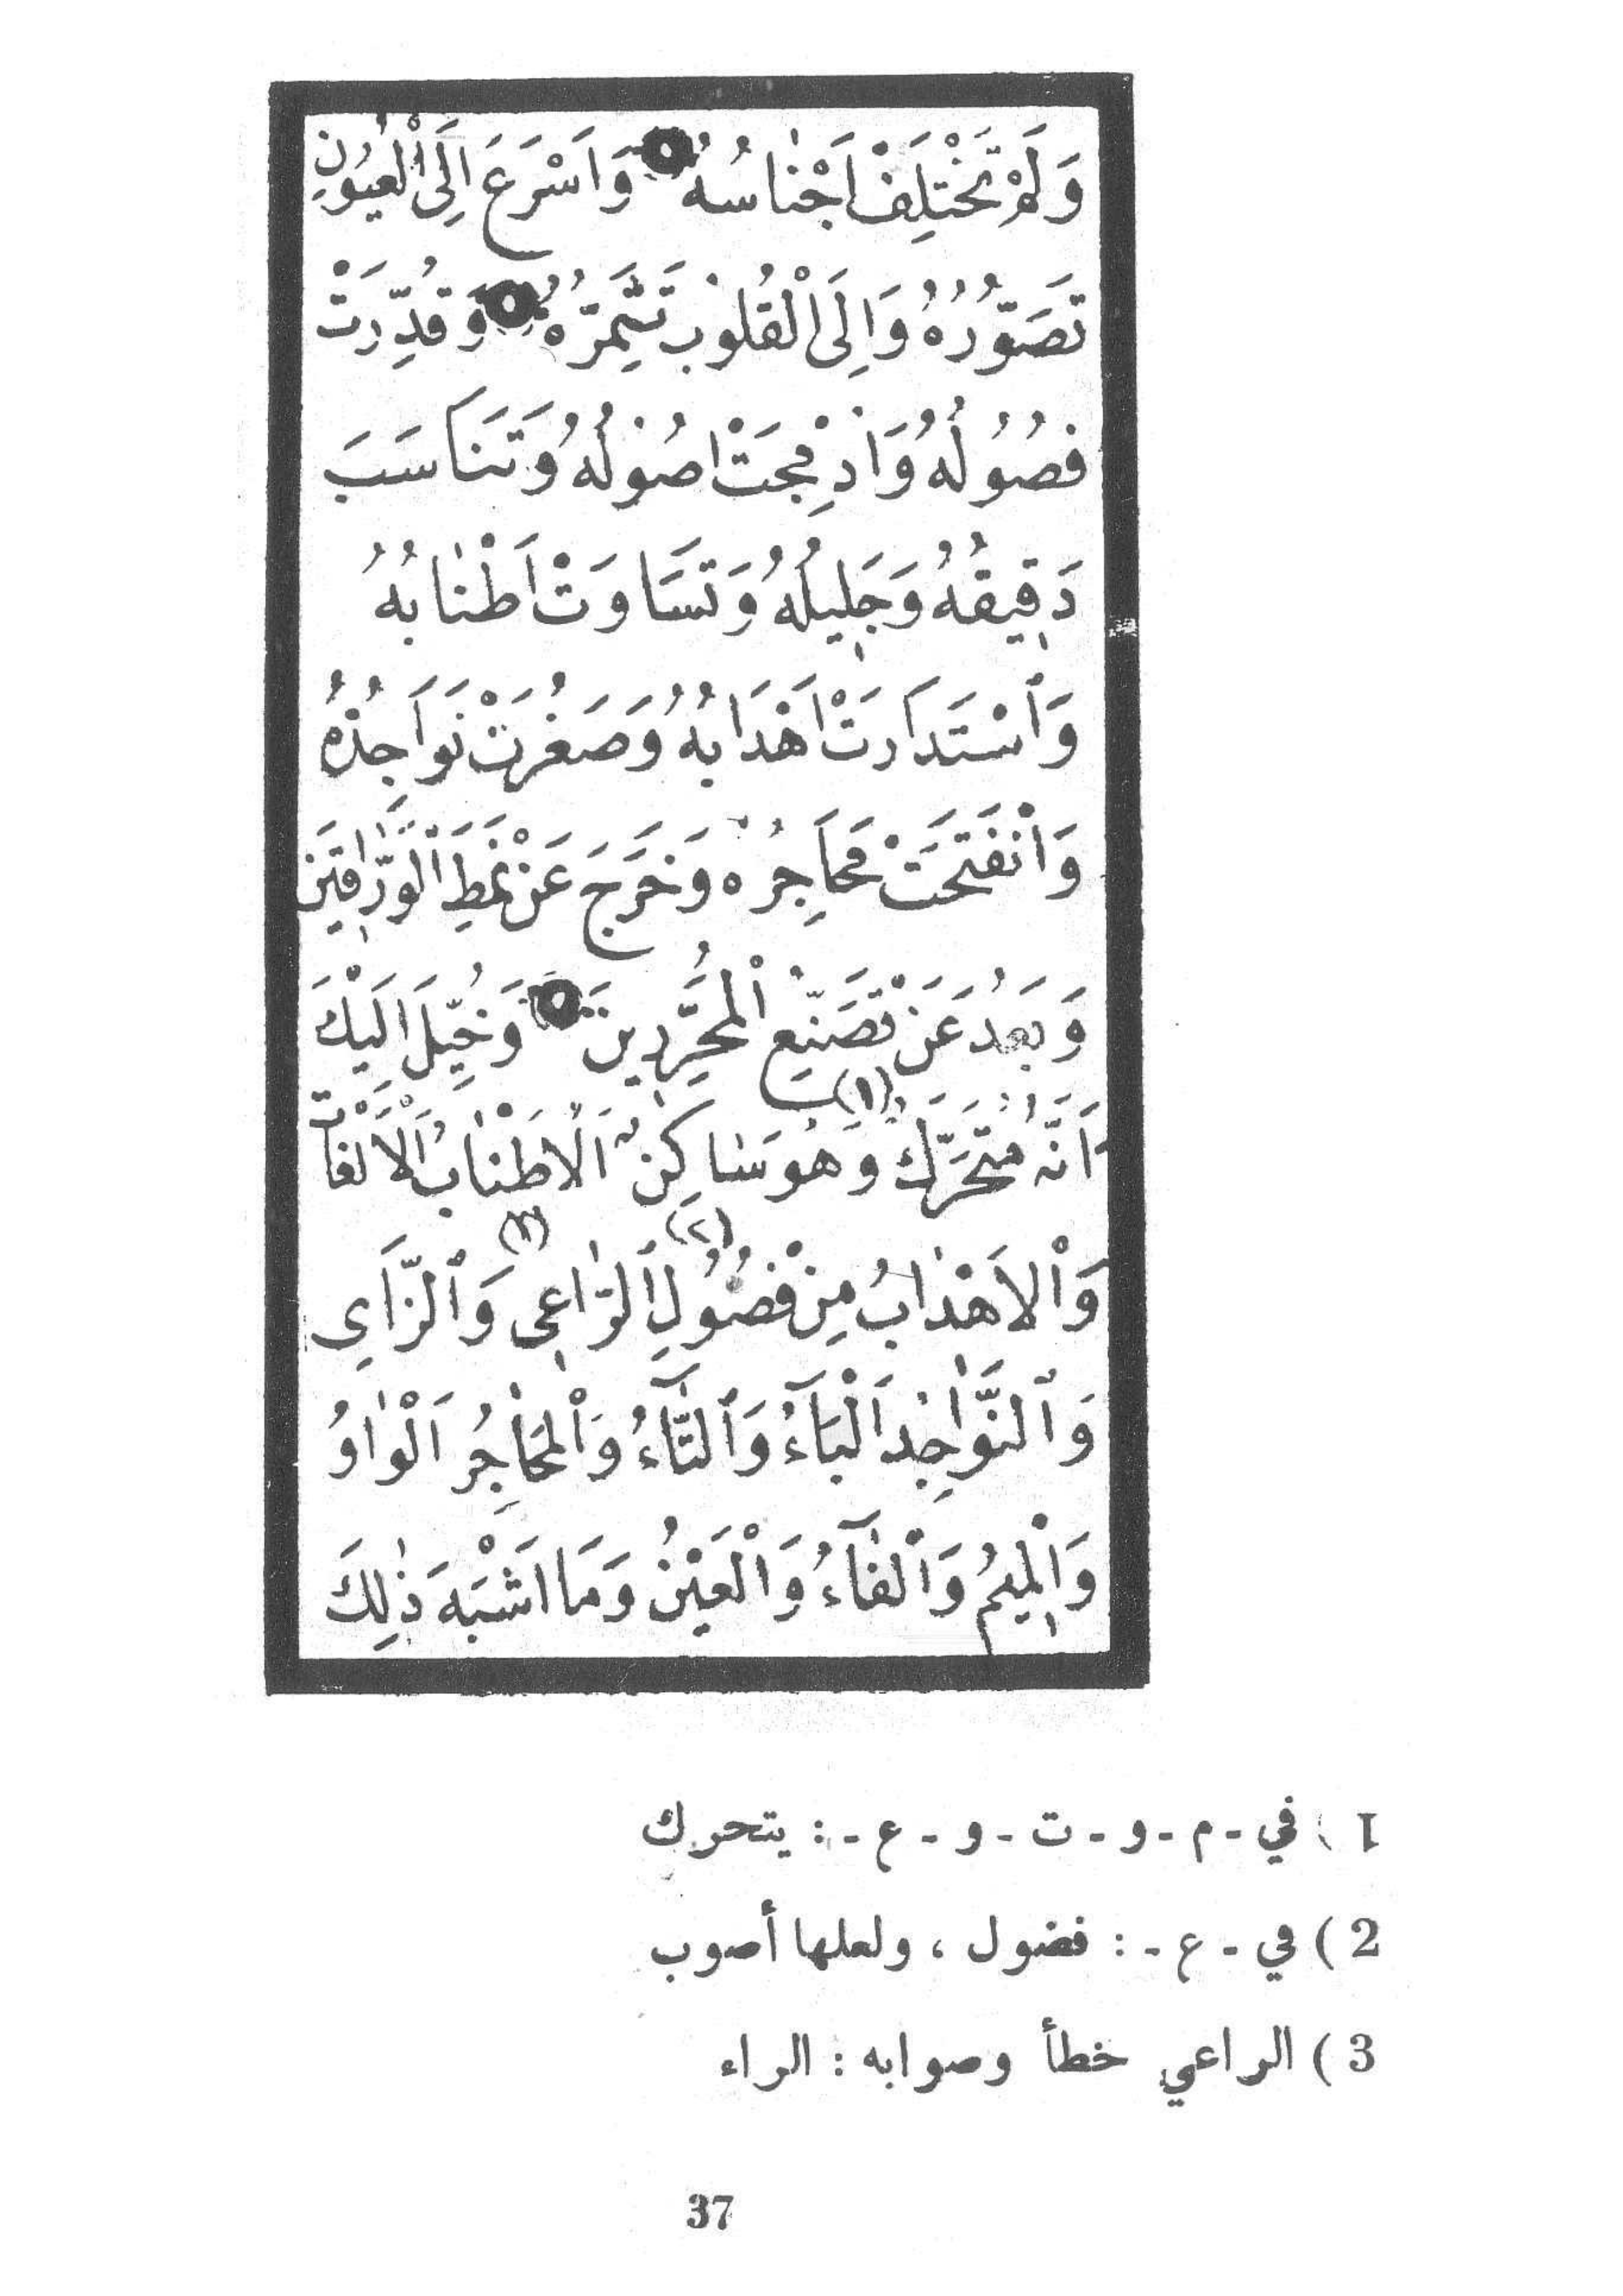 وَلَمْ تَخْتَلِفْ اَجْنَاسُهُ وَاَسْرَعَ اِلَى الْعُيُونِ
تَصَوُّرُهُ وَاِلَى الْقُلُوبِ وَقُدِّرَتْ
فُصُولُهُ وَانْدَمَجَتْ اُصُولُهُ وَتَنَاسَبَ
دَقِيقُهُ وَجَلِيلُهُ وَتَسَاوَتْ اَطْنَابُهُ
وَاسْتَدَارَتْ اَهْدَابُهُ وَصَغُرَتْ نَوَاجِذُهُ
وَانْفَتَحَتْ مَحَاجِرُهُ وَخَرَجَ عَنْ نَمَطِ الْوَرَّاقِينَ
وَبَعُدَ عَنْ تَصَنُّعِ الْمُحَرِّرِينَ وَخُيِّلَ اِلَيْكَ
اَنَّهُ مُتَحَرِّكٌ (١) وَهُوَ سَاكِنٌ اَلْاَطْنَابُ اَلْاَلْفَاتُ
وَالْاَهْدَابُ مِنْ فُصُولِ (٢) الرَّاعِي (٣) وَالزَّايِ
وَالنَّوَاجِذُ اَلْبَآءُ وَالتَّآءُ وَالْمَحَاجِرُ اَلْوَاوُ
وَالْمِيمُ وَالْفَآءُ وَالْعَيْنُ وَمَا اَشْبَهَ ذٰلِكَ
1 ) في - م - و - ت - و - ع - : يتحرك
2 ) في - ع - : فضول ، ولعلها أصوب
3 ) الراعي خطأ وصوابه : الراء
37